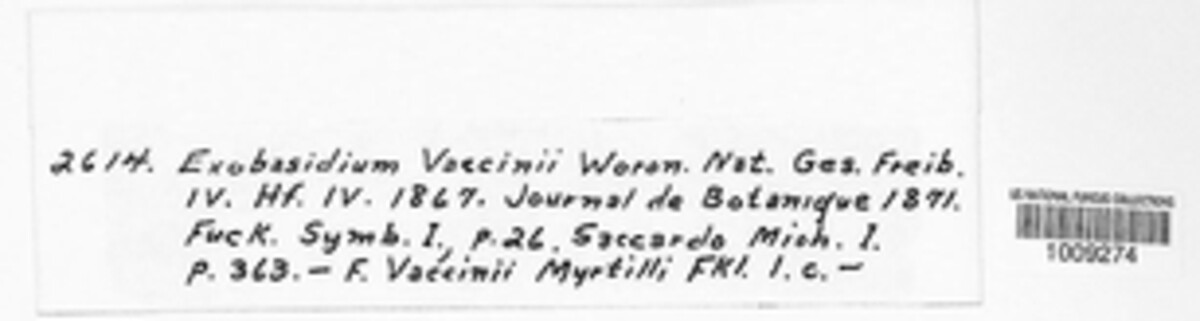 2614. Exobasidium Vaccinii Woron. Nat. Ges. Freib.
IV. Hf. IV. 1867. Journal de Botanique 1871.
Fuck. Symb. I., p. 26. Saccardo Mich. I.
p. 363. — F. Vaccinii Myrtilli FKl. l. c. —
US NATIONAL FUNGUS COLLECTIONS
1009274